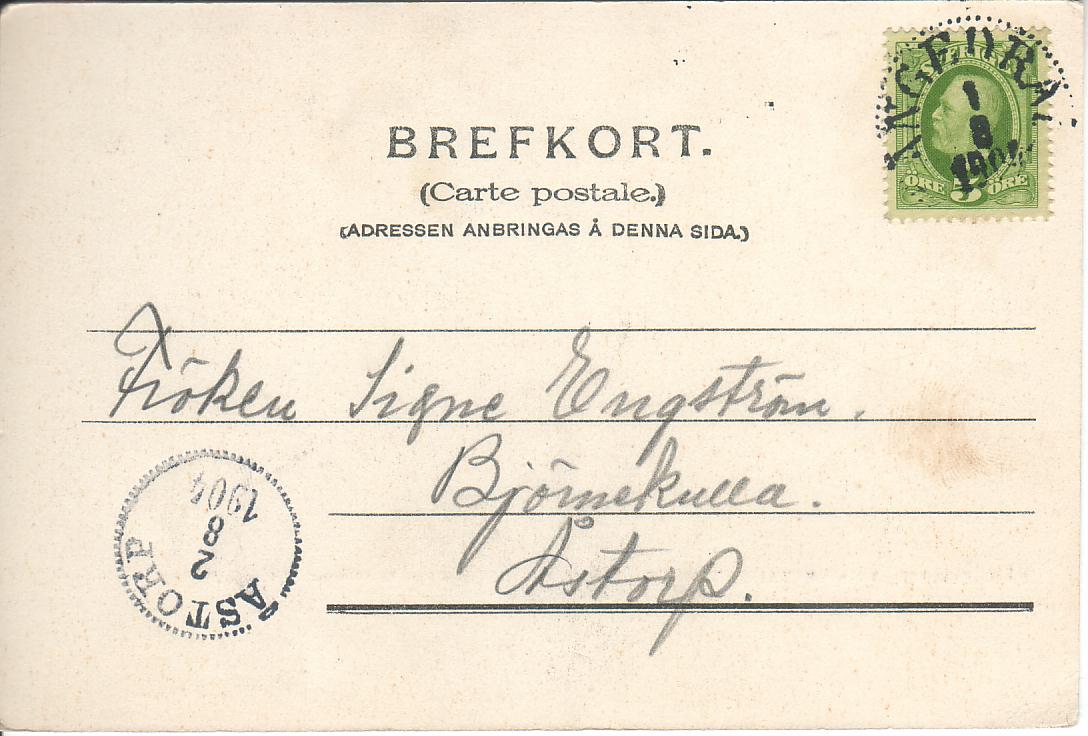 BREFKORT.
(Carte postale.)
(ADRESSEN ANBRINGAS Å DENNA SIDA.)
SVERIGE
ÖRE 5 ÖRE
1
8
1904
Fröken Signe Engström.
Björnekulla.
Åstorp.
ÅSTORP
2
8
1904